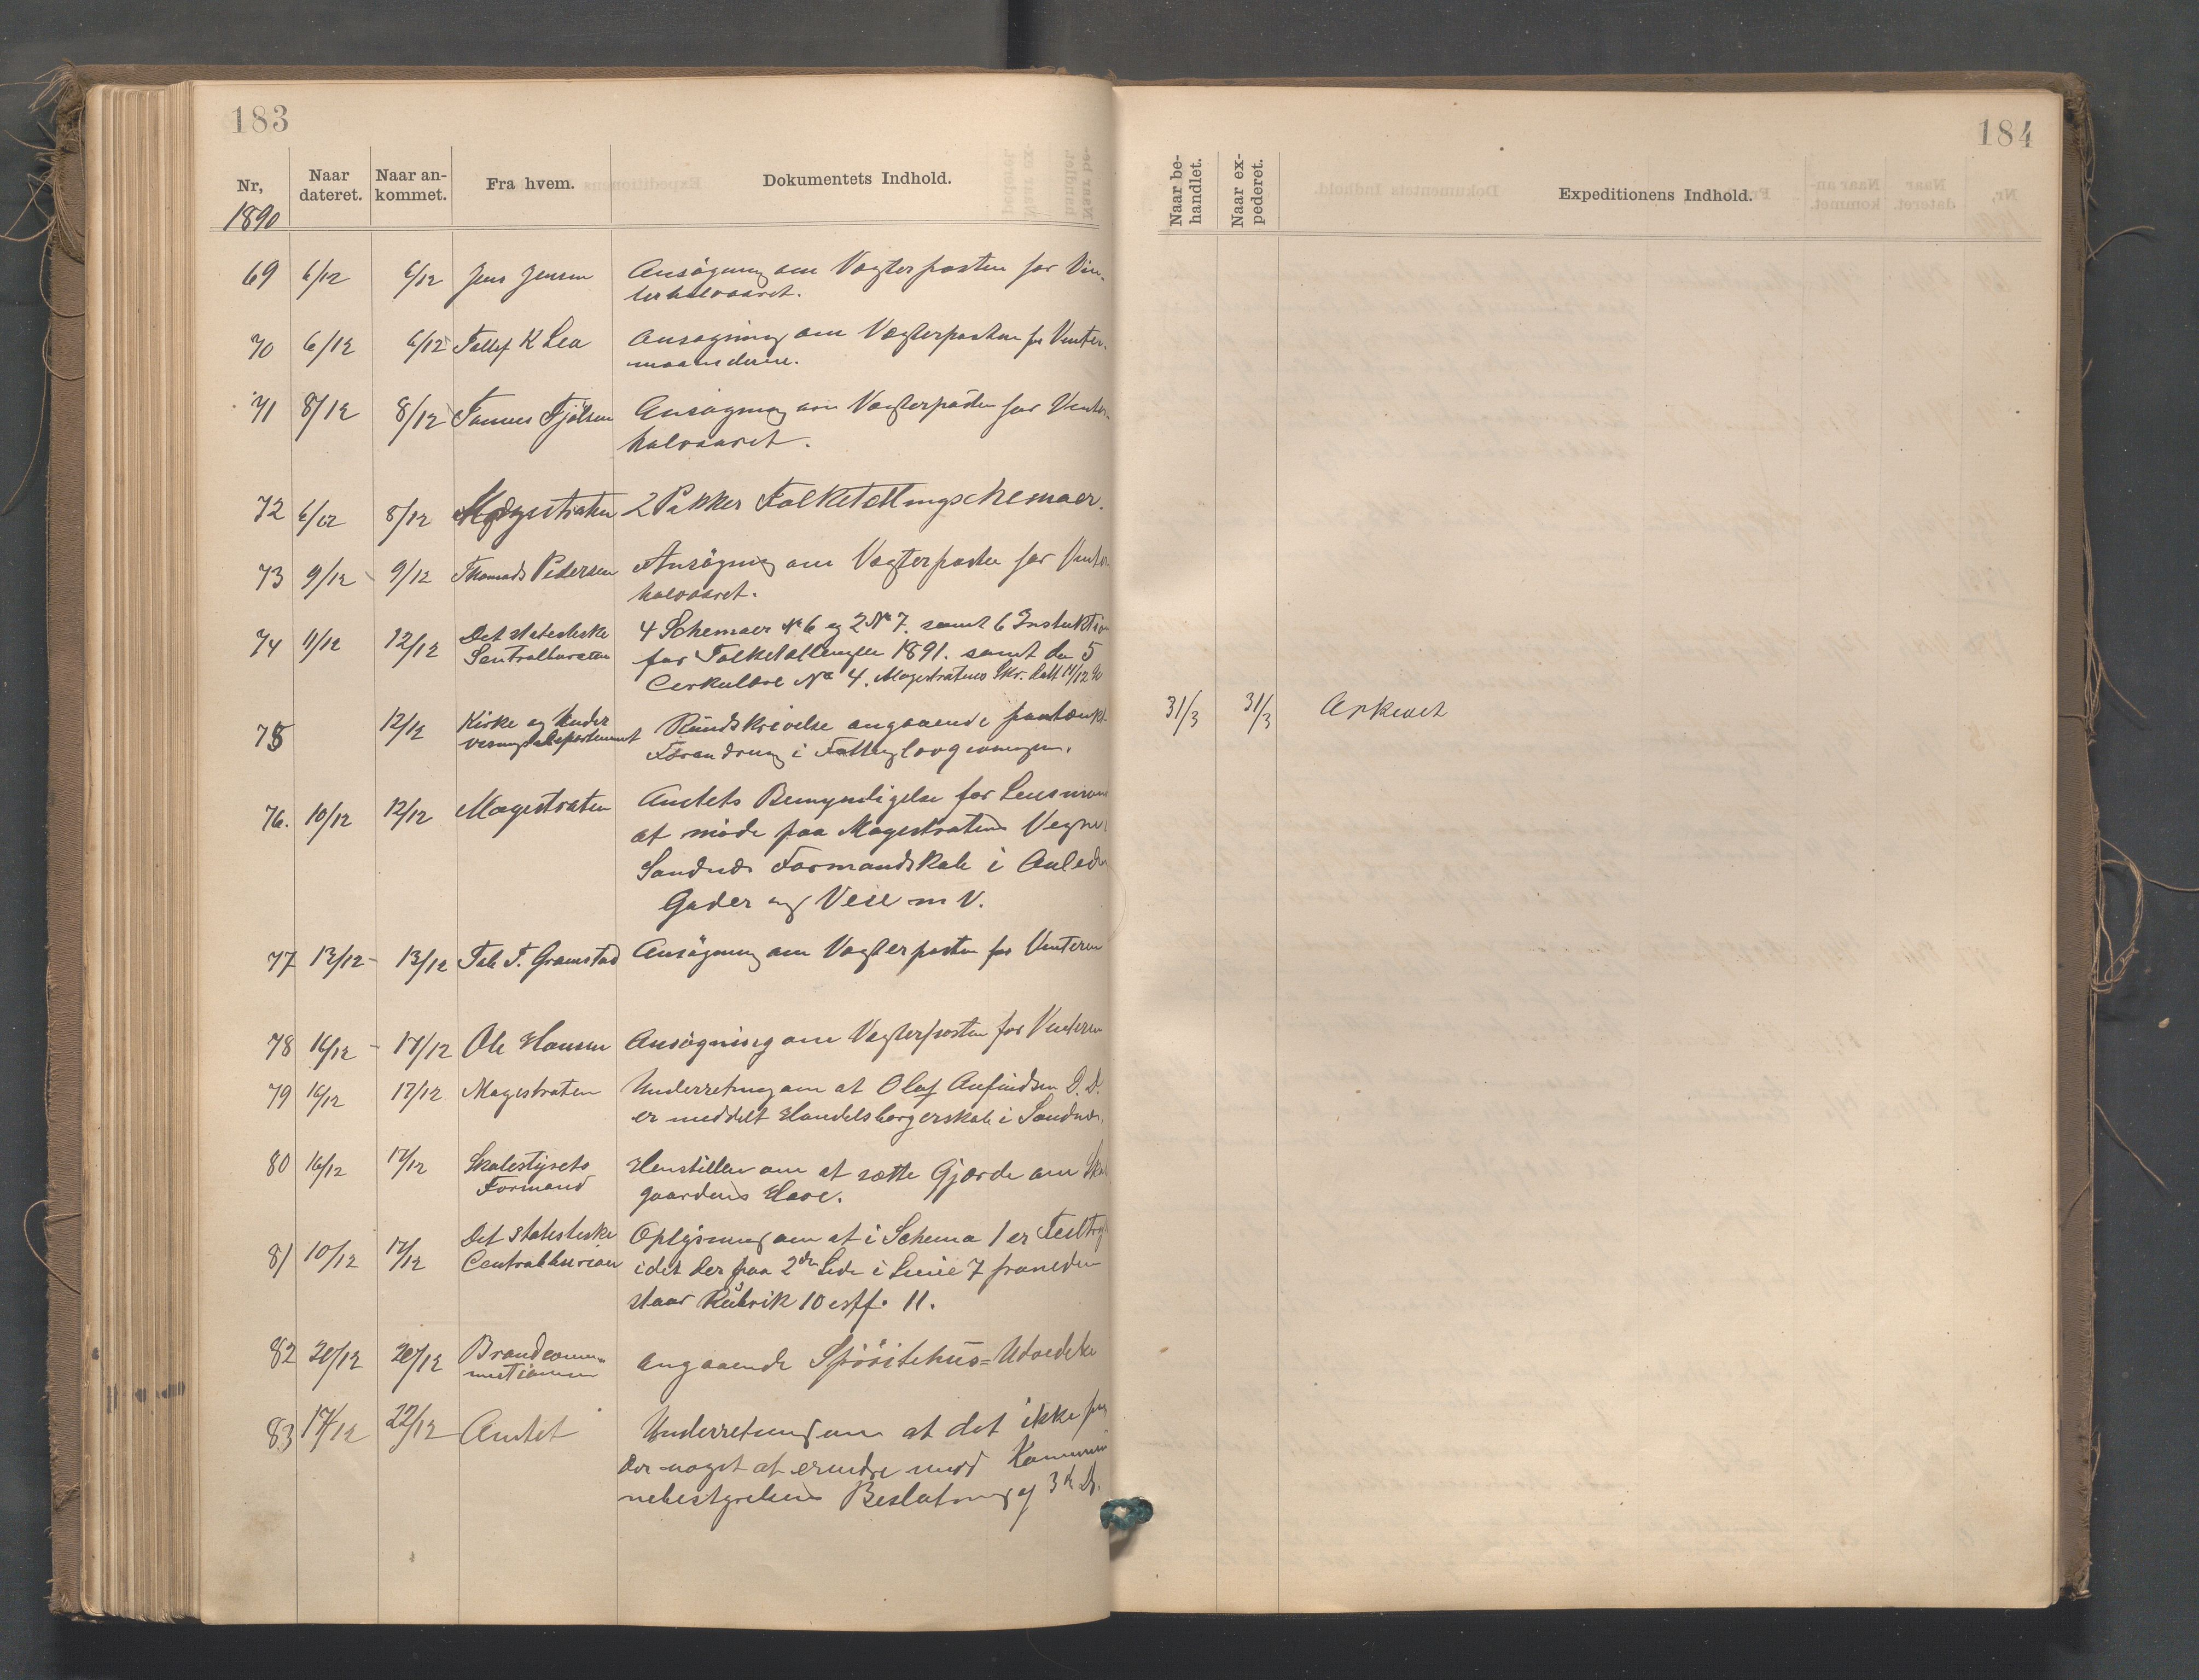 183
Nr,
Naar dateret.
Naar an-kommet.
Fra hvem.
Dokumentets Indhold.
1890
69 6/12 6/12 Jens Jensen Ansögning om Vægterposten for Vin-
terhalvaaret.
70 6/12 6/12 Tallef K Lea Ansøgning om Vægterposten for Vinter-
maanederne.
71 8/12 8/12 Tønnes Fjölsen Ansögning om Vægterposten for Vinter-
halvaaret.
72 6/12 8/12 Magistraten 2 Pakker Folketællingschemaer.
73 9/12 9/12 Thomads Pedersen Ansögning om Vægterposten for Vinter
halvaaret.
74 11/12 12/12 Det statestiske 4 Schemaer No 6 og 2 No 7. samt 6 Instuktion
Sentralbureau for Folketællingen 1891. samt de 5
Cirkulære No 4. Magistratens Skr. datt 11/12 90
75 12/12 Kirke og Under Rundskrivelse angaaende paatænkt
visningsdepartement Forandring i Fattiglovgivningen.
76. 10/12 12/12 Magistraten Amtets Bemyndigelse for Lensmand
at möde paa Magistratens Vegne
Sandnæs Formandskab i Anledn
Gader og Veie m V.
77 13/12 - 13/12 Tale T. Gramstad Ansögning om Vægterposten for Vinteren
78 16/12 - 17/12 Ole Hansen Ansögning om Vægterposten for Vinteren
79 16/12 17/12 Magestraten Underretning om at Olaf Anfindsen D.D.
er meddelt Handelsborgerskab i Sandnæs.
80 16/12 17/12 Skolestyrets Henstillen om at sætte Gjærde om Sko
Formand gaardens Have.
81 10/12 17/12 Det statestiske Oplysning om at i Schema 1 er Feiltryk
Centralbureau idet der paa 2den Side i Linie 7 franeden
staar Rubrik 10 istf. 11.
82 20/12 20/12 Brandcom- angaaende Spröitehus=Udvedelse
missionen
83 17/12 22/12 Amtet Underretning om at det ikke fin
der noget at erindre mod Kommu
nebestyrelsens Beslutning af 3die D.
184
Naar be-handlet.
Naar ex-pederet.
Expeditionens Indhold.
31/3 31/3 Arkivet